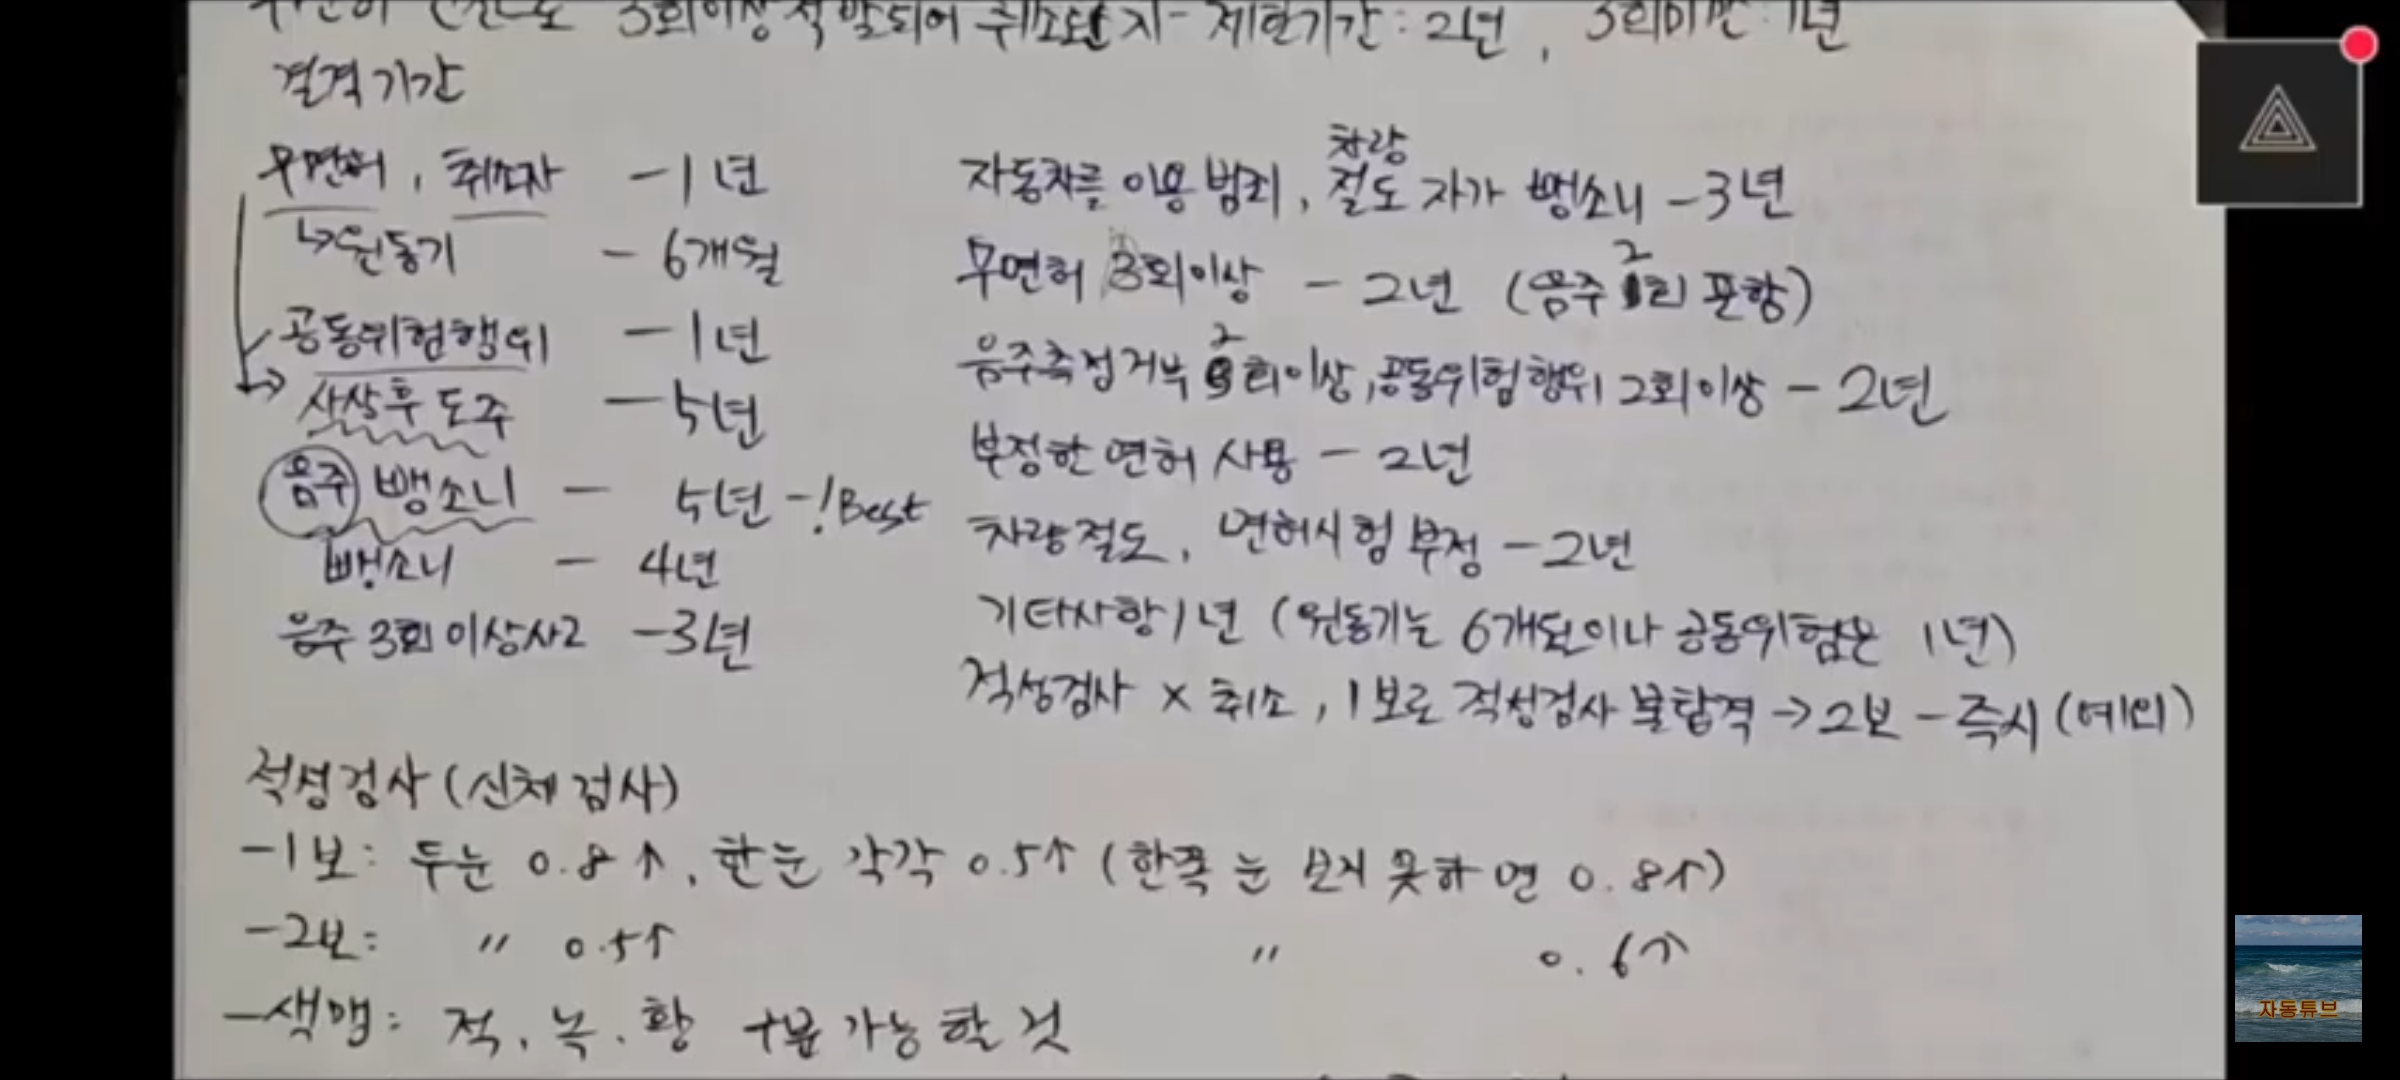 3회이상 적발되어 취소된 자 - 제한기간 : 2년, 3회미만 : 1년
결격기간
무면허, 취소자 - 1년
↳원동기 - 6개월
공동위험행위 - 1년
사상후 도주 - 5년
음주 뺑소니 - 5년 -! Best
뺑소니 - 4년
음주 3회 이상 사고 - 3년
차량
자동차를 이용 범죄, 절도 자가 뺑소니 - 3년
2
무면허 3회이상 - 2년 (음주 회 포함)
2
음주측정거부 회이상, 공동위험행위 2회이상 - 2년
부정한 면허 사용 - 2년
차량절도, 면허시험 부정 - 2년
기타사항 1년 (원동기는 6개월이나 공동위험은 1년)
적성검사 x 취소, 1보로 적성검사 불합격 → 2보 - 즉시 (예외)
적성검사 (신체검사)
-1보: 두눈 0.8↑, 한눈 각각 0.5↑ (한쪽 눈 보지 못하면 0.8↑)
-2보: 〃 0.5↑ 〃 0.6↑
-색맹: 적. 녹. 황 구분 가능할 것
자동튜브